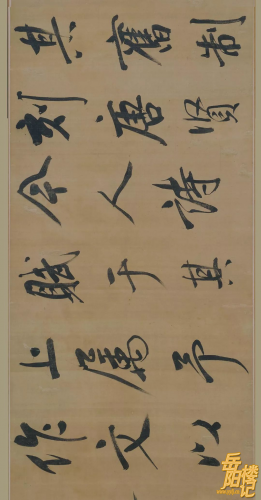 其舊制
刻唐賢
今人詩
賦于其
上屬予
作文以
岳阳楼记